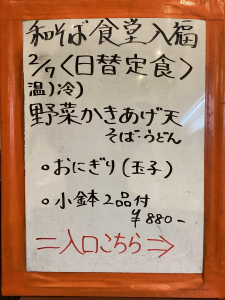 和そば食堂入福
2/7〈日替定食〉
温)冷)
野菜かきあげ天
そば・うどん
○おにぎり(玉子)
○小鉢2品付
¥880-
=入口こちら⇒